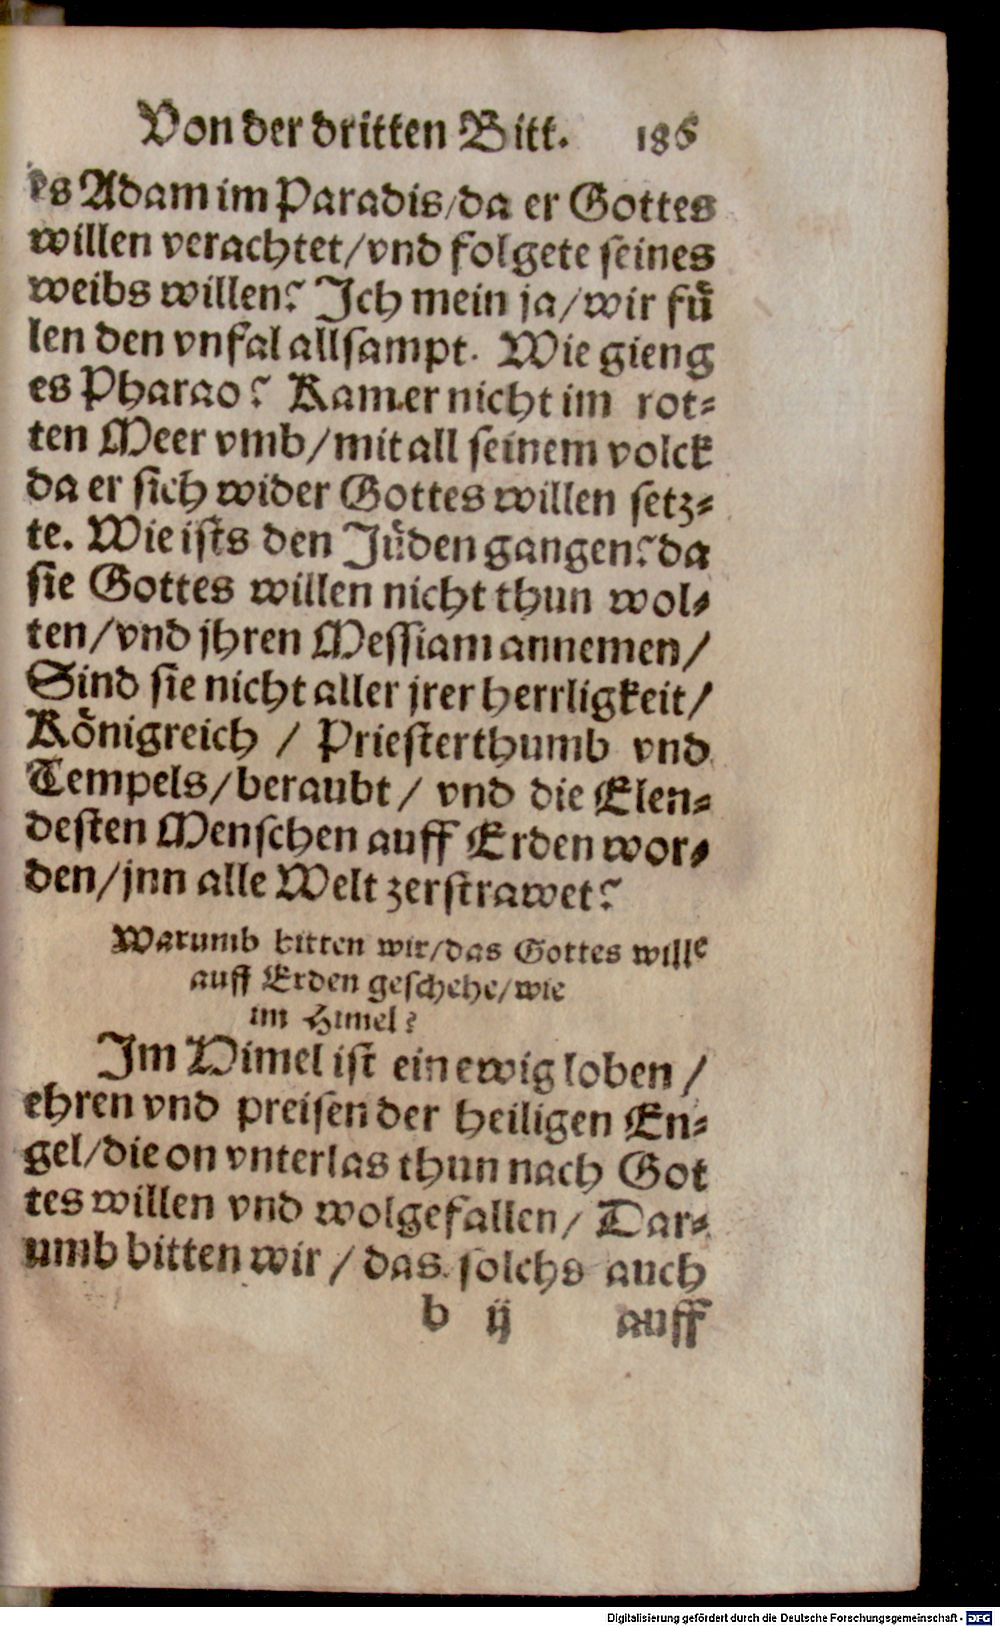 Von der dritten Bitt. 186
es Adam im Paradis/da er Gottes
willen verachtet/vnd folgete seines
weibs willen? Ich mein ja/wir fuͤ
len den vnfal allsampt. Wie gieng
es Pharao? Kam er nicht im rot⸗
ten Meer vmb/mit all seinem volck
da er sich wider Gottes willen setz⸗
te. Wie ists den Juͤden gangen? da
sie Gottes willen nicht thun wol⸗
ten/vnd jhren Messiam annemen/
Sind sie nicht aller jrer herrligkeit/
Koͤnigreich / Priesterthumb vnd
Tempels/beraubt / vnd die Elen⸗
desten Menschen auff Erden wor⸗
den/jnn alle Welt zerstrawet?
Warumb bitten wir/das Gottes wille
auff Erden geschehe/wie
im Himel?
Im Himel ist ein ewig loben /
ehren vnd preisen der heiligen En⸗
gel/die on vnterlas thun nach Got
tes willen vnd wolgefallen/ Dar⸗
umb bitten wir / das solchs auch
b ij auff
Digitalisierung gefördert durch die Deutsche Forschungsgemeinschaft - DFG